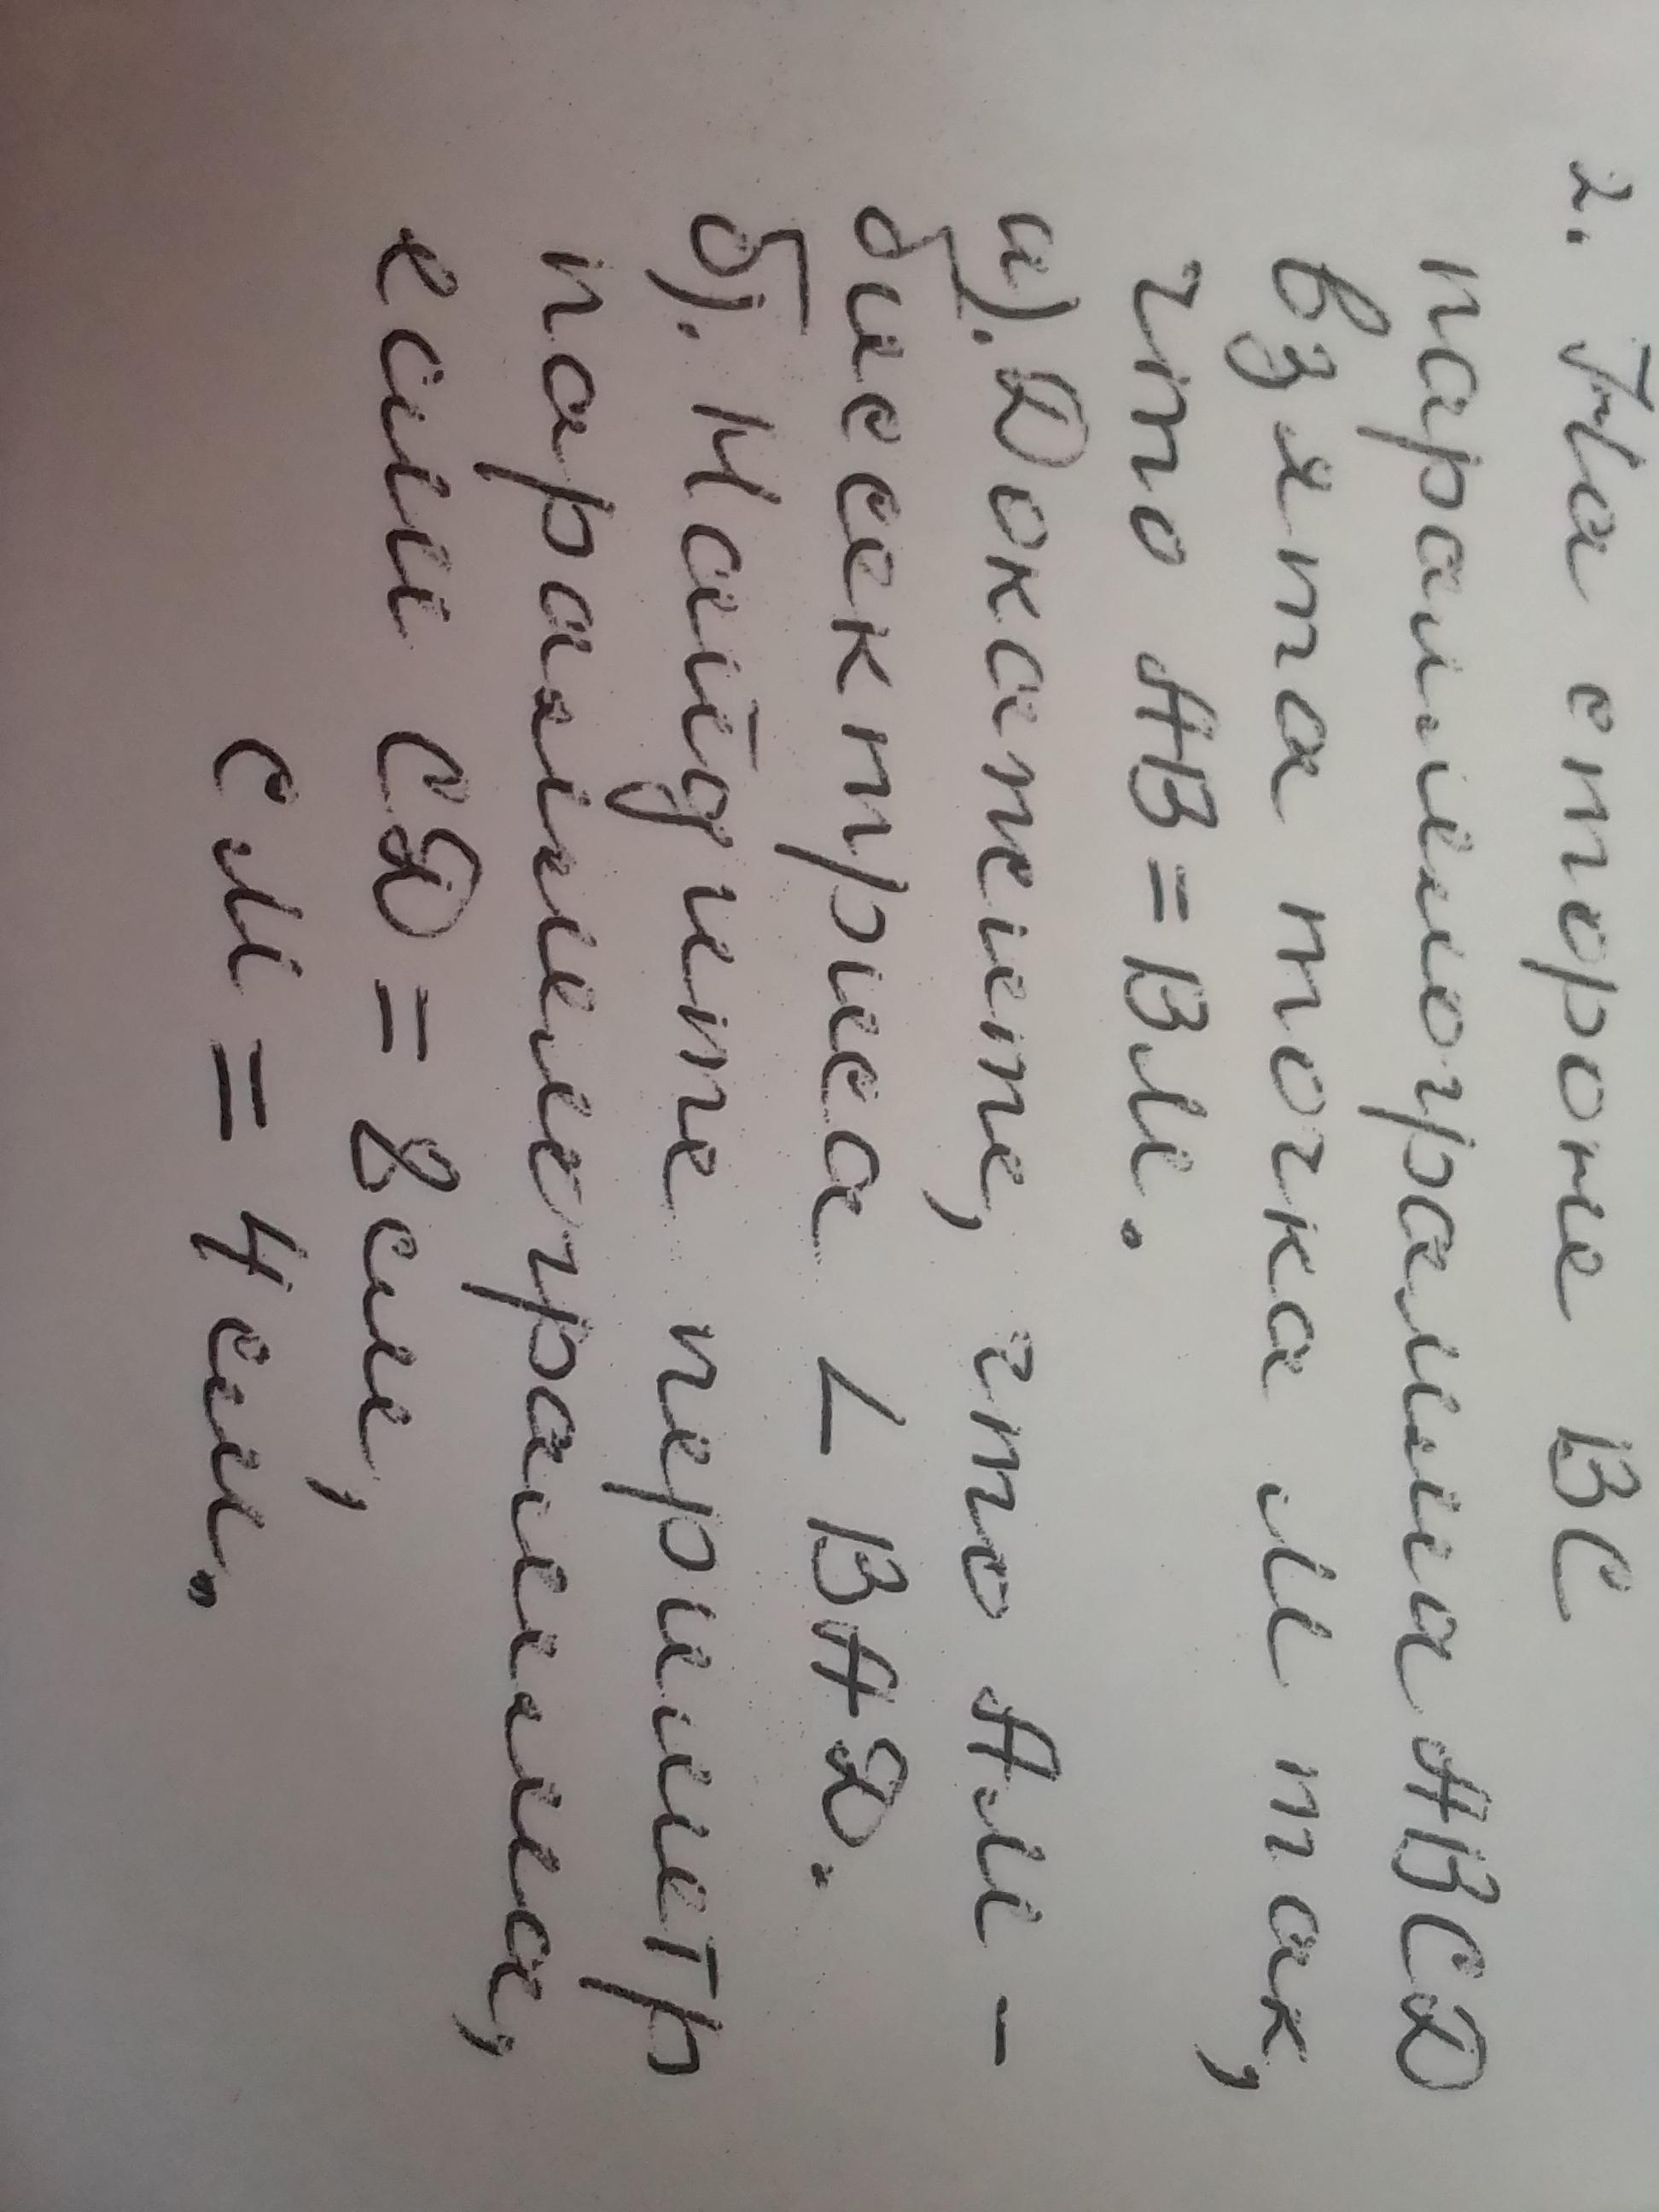 2. На стороне BC
параллелограмма ABCD
взята точка M так,
что AB = BM.
а). Докажите, что AM -
биссектриса ∠ BAD.
б). Найдите периметр
параллелограмма,
если CD = 8 см,
CM = 4 см.